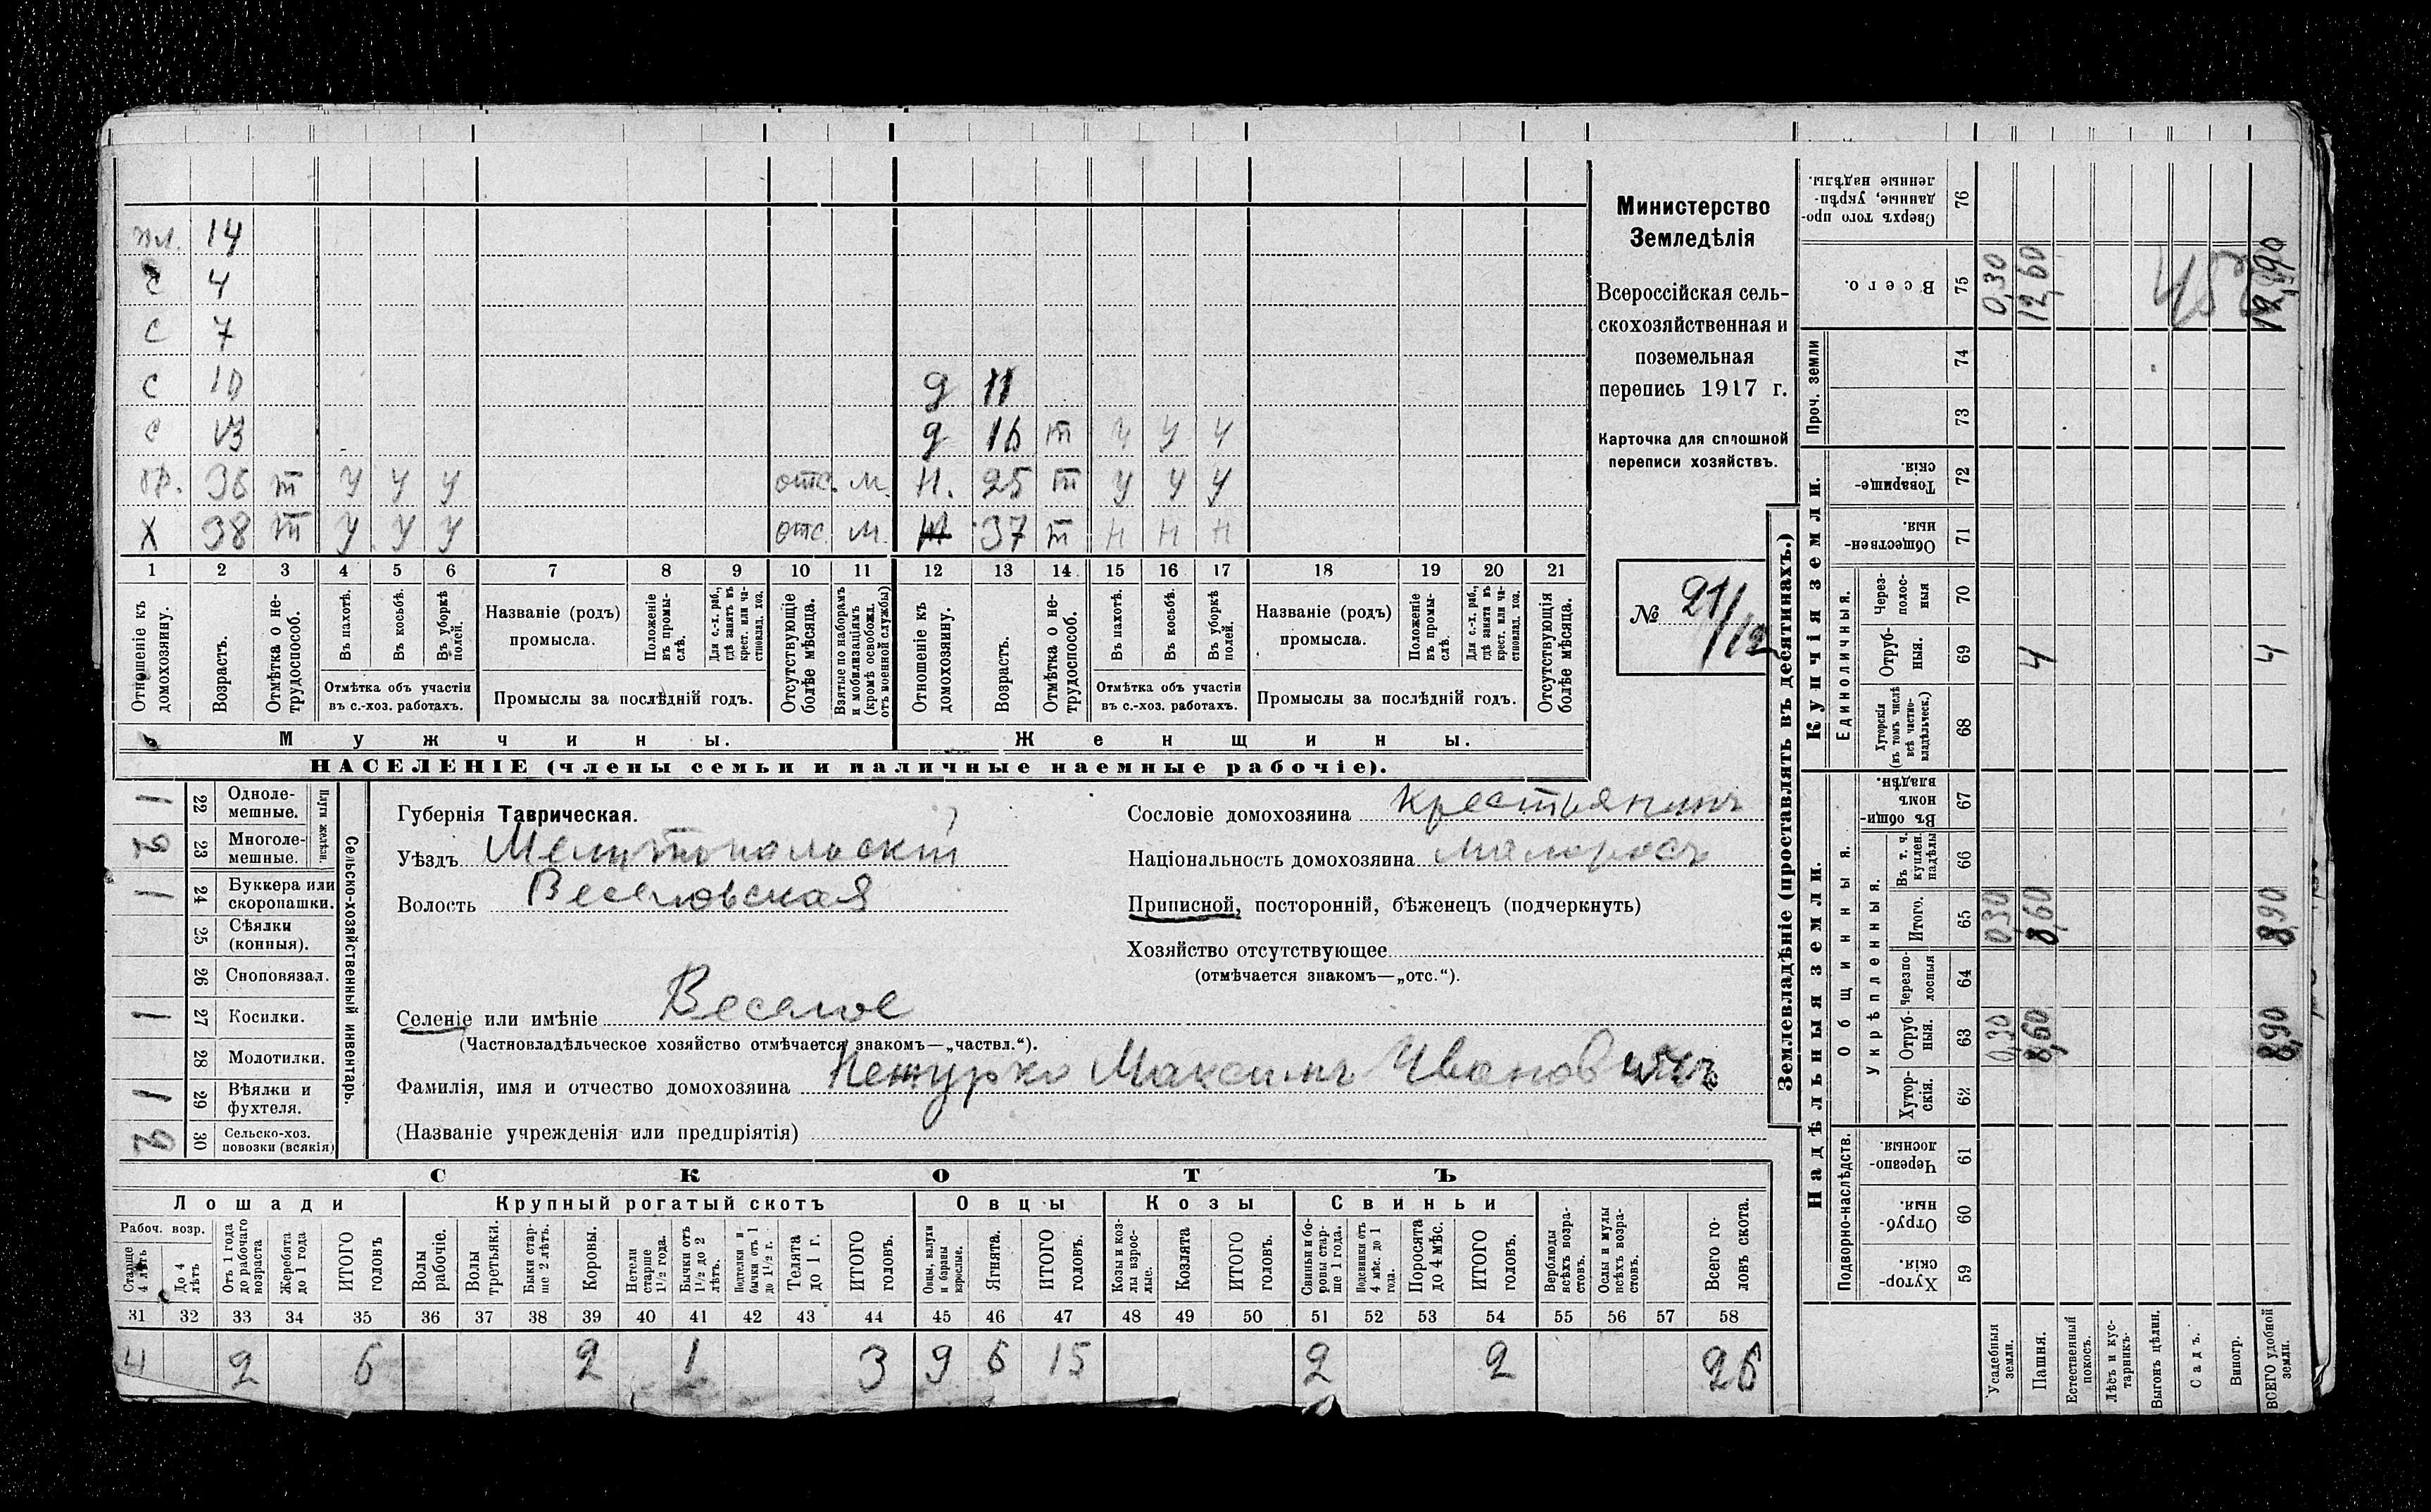 пл. 14
С 4
С 7
С 10 д 11
С 13 д 16 т у у у
бр. 36 т у у у отс. м. Н. 25 т у у у
Х 38 т у у у отс. м. 37 т н н н
1 2 3 4 5 6 7 8 9 10 11 12 13 14 15 16 17 18 19 20 21
Отношеніе къ домохозяину.
Возрастъ.
Отмѣтка о нетрудоспособ.
Въ пахотѣ.
Въ косьбѣ.
Въ уборкѣ полей.
Отмѣтка объ участіи
въ с.-хоз. работахъ.
Названіе (родъ)
промысла.
Положеніе въ промыслѣ.
Для с.-х. раб., гдѣ занятъ въ крест. или частновлад. хоз.
Промыслы за послѣдній годъ.
Отсутствующіе болѣе мѣсяца.
Взятые по наборамъ и мобилизаціямъ (кромѣ освобожд. отъ военной службы)
Отношеніе къ домохозяину.
Возрастъ.
Отмѣтка о нетрудоспособ.
Въ пахотѣ.
Въ косьбѣ.
Въ уборкѣ полей.
Отмѣтка объ участіи
въ с.-хоз. работахъ.
Названіе (родъ)
промысла.
Положеніе въ промыслѣ.
Для с.-х. раб., гдѣ занята въ крест. или частновлад. хоз.
Промыслы за послѣдній годъ.
Отсутствующія болѣе мѣсяца.
Мужчины. Женщины.
НАСЕЛЕНІЕ (члены семьи и наличные наемные рабочіе).
Министерство
Земледѣлія
Всероссійская сель-
скохозяйственная и
поземельная
перепись 1917 г.
Карточка для сплошной
переписи хозяйствъ.
№ 21/12
Сельско-хозяйственный инвентарь.
Плуги желѣзн.
1 22 Одноле-
мешные.
3 23 Многоле-
мешные.
1 24 Буккера или
скоропашки.
25 Сѣялки
(конныя).
26 Сноповязал.
1 27 Косилки.
28 Молотилки.
1 29 Вѣялки и
фухтеля.
3 30 Сельско-хоз.
повозки (всякія)
Губернія Таврическая.
Уѣздъ Мелитопольскій
Волость Веселовская
Сословіе домохозяина крестьянинъ
Національность домохозяина малоросъ
Приписной, посторонній, бѣженецъ (подчеркнуть)
Хозяйство отсутствующее
(отмѣчается знакомъ—„отс.“).
Селеніе или имѣніе Веселое
(Частновладѣльческое хозяйство отмѣчается знакомъ—„частвл.“).
Фамилія, имя и отчество домохозяина Максимъ Ивановичъ
(Названіе учрежденія или предпріятія)
СКОТЪ
Лошади Крупный рогатый скотъ Овцы Козы Свиньи
Рабоч. возр.
Старше 4 лѣтъ
До 4 лѣтъ
Отъ 1 года до рабочаго возраста
Жеребята до 1 года
ИТОГО головъ
Волы рабочіе.
Волы третьяки.
Быки старше 2 лѣтъ.
Коровы.
Нетели старше 1 1/2 года.
Бычки отъ 1 1/2 до 2 лѣтъ.
Подтелки и бычки отъ 1 до 1 1/2 г.
Телята до 1 г.
ИТОГО головъ.
Овцы, валухи и бараны взрослые.
Ягнята.
ИТОГО головъ.
Козы и козлы взрослые.
Козлята
ИТОГО головъ.
Свиньи и боровы старше 1 года.
Подсвинки отъ 4 мѣс. до 1 года.
Поросята до 4 мѣс.
ИТОГО головъ.
Верблюды всѣхъ возрастовъ.
Ослы и мулы всѣхъ возрастовъ.
Всего головъ скота.
31 32 33 34 35 36 37 38 39 40 41 42 43 44 45 46 47 48 49 50 51 52 53 54 55 56 57 58
4 2 6 2 1 3 9 6 15 2 2 26
Землевладѣніе (проставлять въ десятинахъ.)
Купчія земли.
Надѣльныя земли.
Проч. земли
Единоличныя.
Общинныя.
Укрѣпленныя.
Подворно-наслѣдств.
Сверхъ того проданные, укрѣпленные надѣлы. 76
Всего. 75 0,30 12,60 12,90
74
73
Товарищескія. 72
Общественныя. 71
Черезполосныя 70
Отрубныя. 69 4 4
Хуторскія (въ томъ числѣ всѣ частновладѣльческ.) 68
Въ общинномъ владѣн. 67
Въ т. ч. куплен. надѣлы 66
Итого. 65 0,30 8,60 8,90
Черезполосныя 64
Отрубныя. 63 0,30 8,60 8,90
Хуторскія. 62
Черезполосныя 61
Отрубныя. 60
Хуторскія. 59
Усадебныя земли.
Пашня.
Естественный покосъ.
Лѣсъ и кустарникъ.
Выгонъ цѣлин.
Садъ.
Виногр.
ВСЕГО удобной земли.